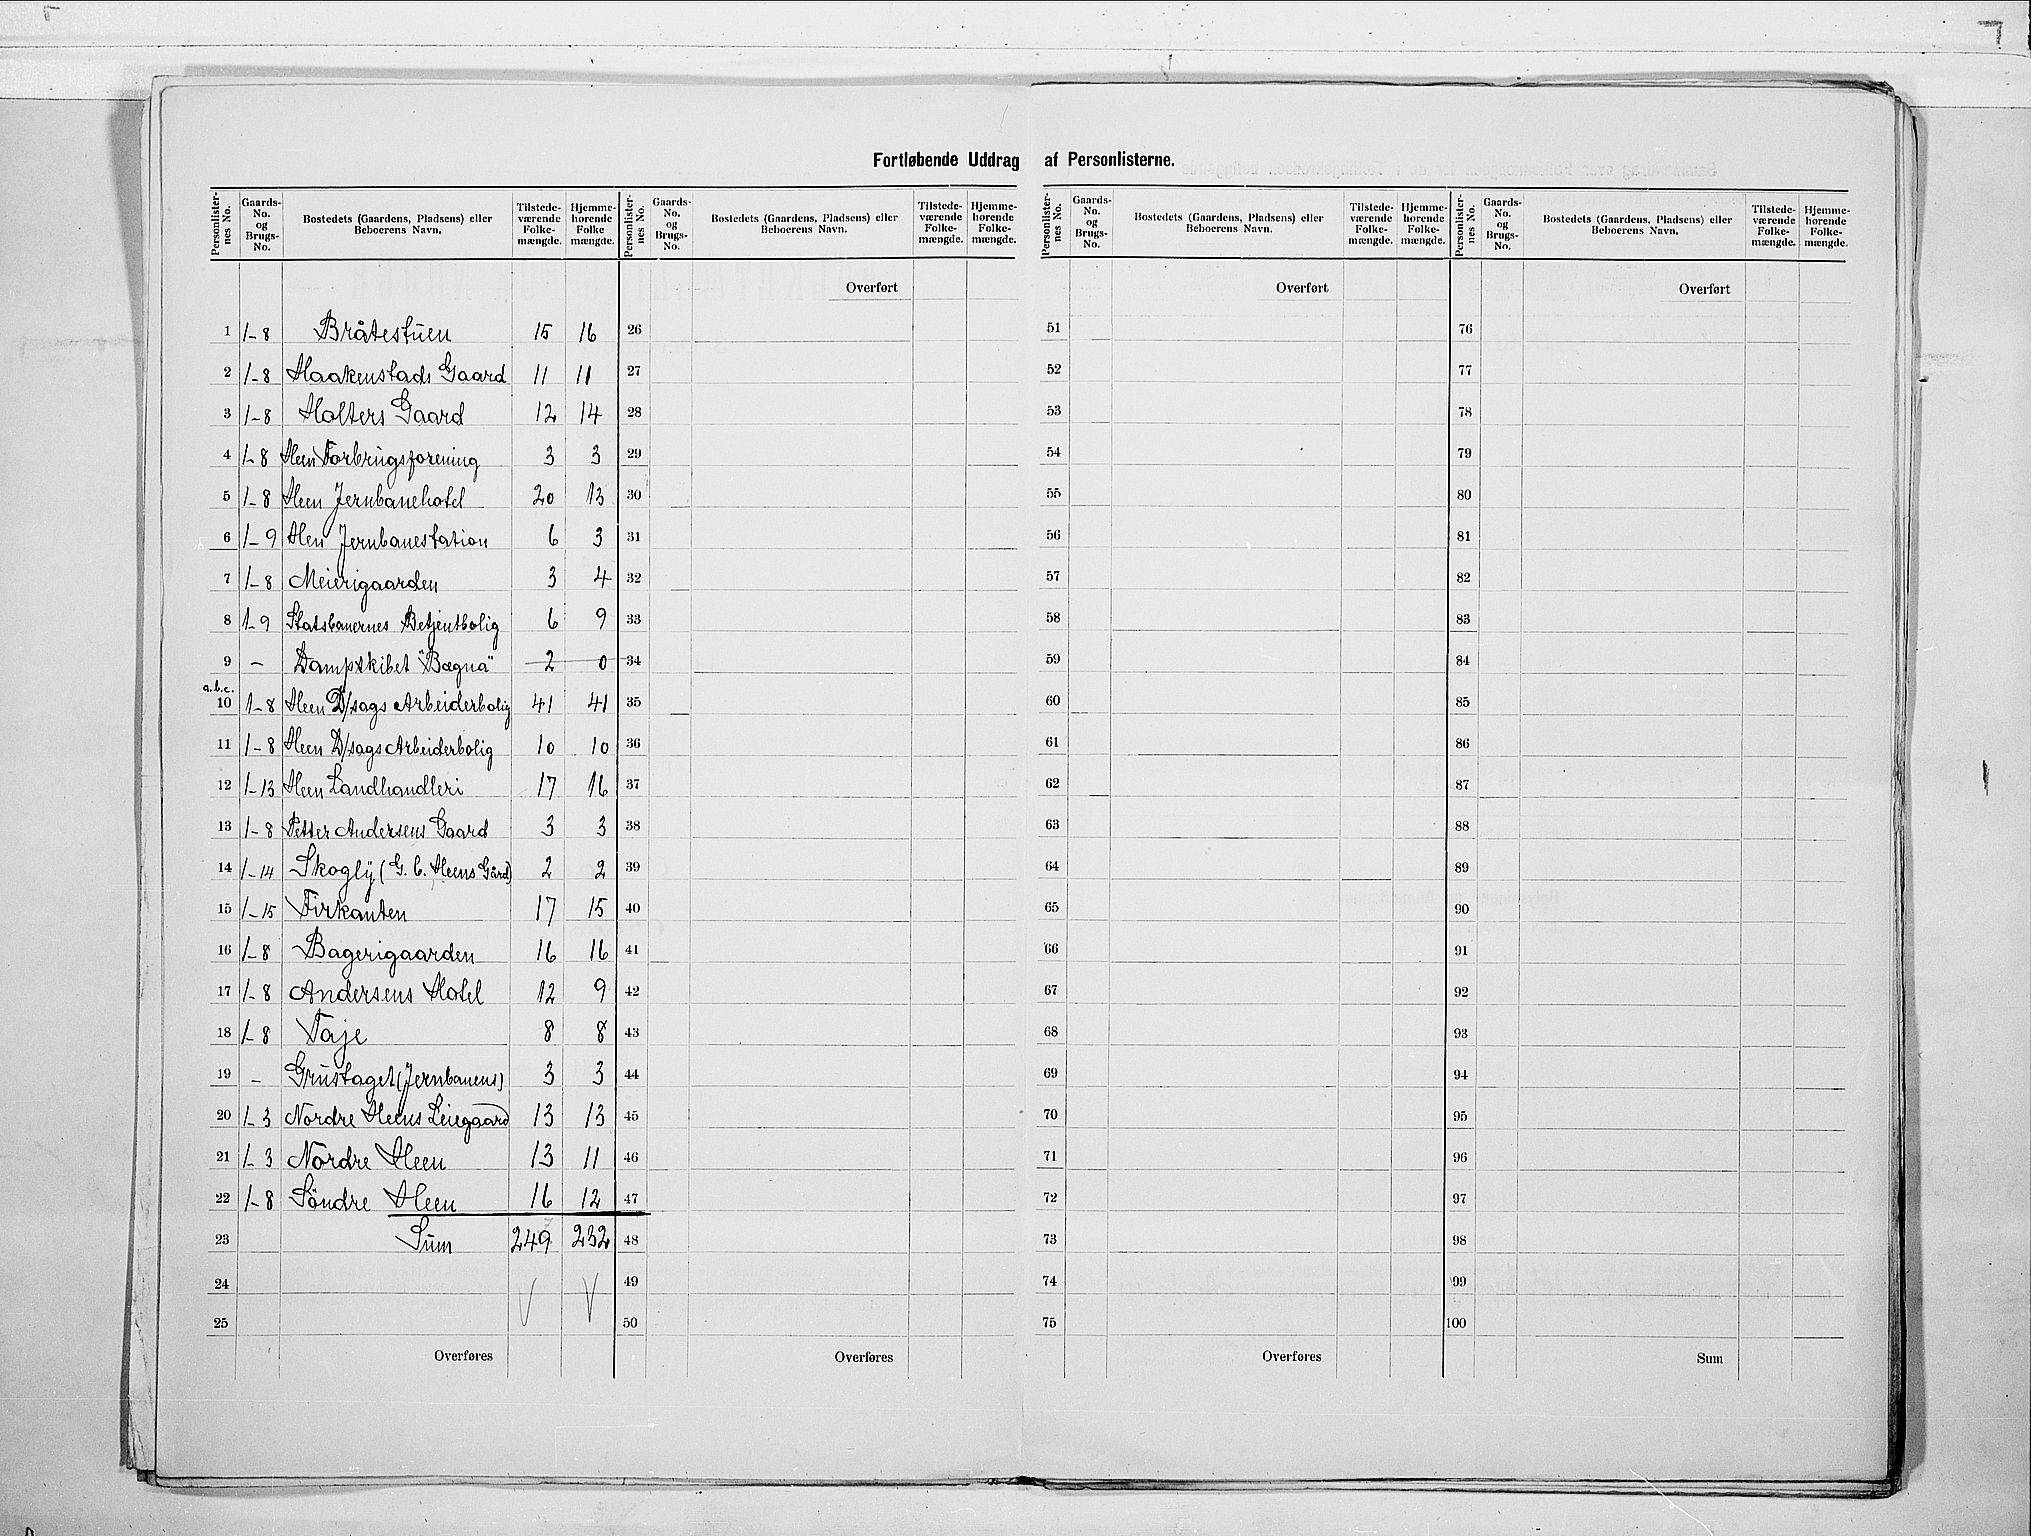 Fortløbende Uddrag af Personlisterne.
Personlister-nes No. Gaards-No. og Brugs-No. Bostedets (Gaardens, Pladsens) eller Beboerens Navn. Tilstede-værende Folke-mængde. Hjemme-hørende Folke mængde.
1 1-8 Bråtestuen 15 16
2 1-8 Haakenstads Gaard 11 11
3 1-8 Holters Gaard 12 14
4 1-8 Heen Forbrugsforening 3 3
5 1-8 Heen Jernbanehotel 20 13
6 1-9 Hen Jernbanestation 6 3
7 1-8 Meierigaarden 3 4
8 1-9 Statsbanernes Betjentbolig 6 9
9 - Dampskibet "Bægna" 2 0
a.b.c.
10 1-8 Heen D/sags Arbeiderbolig 41 41
11 1-8 Heen D/sags Arbeiderbolig 10 10
12 1-13 Heen Landhandleri 17 16
13 1-8 Petter Andersens Gaard 3 3
14 1-14 Skogly (G. C. Heens Gård) 2 2
15 1-15 Firkanten 17 15
16 1-8 Bagerigaarden 16 16
17 1-8 Andersens Hotel 12 9
18 1-8 Taje 8 8
19 - Grustaget (Jernbanens) 3 3
20 1-3 Nordre Heens Leiegaard 13 13
21 1-3 Nordre Heen 13 11
22 1-8 Søndre Heen 16 12
23 Sum 249 232
24
25
Overføres
Personlister-nes No. Gaards-No. og Brugs-No. Bostedets (Gaardens, Pladsens) eller Beboerens Navn. Tilstede-værende Folke-mængde. Hjemme-hørende Folke-mængde.
Overført
26
27
28
29
30
31
32
33
34
35
36
37
38
39
40
41
42
43
44
45
46
47
48
49
50
Overføres
Personlister-nes No. Gaards-No. og Brugs-No. Bostedets (Gaardens, Pladsens) eller Beboerens Navn. Tilstede-værende Folke-mængde. Hjemme-hørende Folke-mængde.
Overført
51
52
53
54
55
56
57
58
59
60
61
62
63
64
65
66
67
68
69
70
71
72
73
74
75
Overføres
Personlister-nes No. Gaards-No. og Brugs-No. Bostedets (Gaardens, Pladsens) eller Beboerens Navn. Tilstede-værende Folke-mængde. Hjemme-hørende Folke-mængde.
Overført
76
77
78
79
80
81
82
83
84
85
86
87
88
89
90
91
92
93
94
95
96
97
98
99
100
Sum